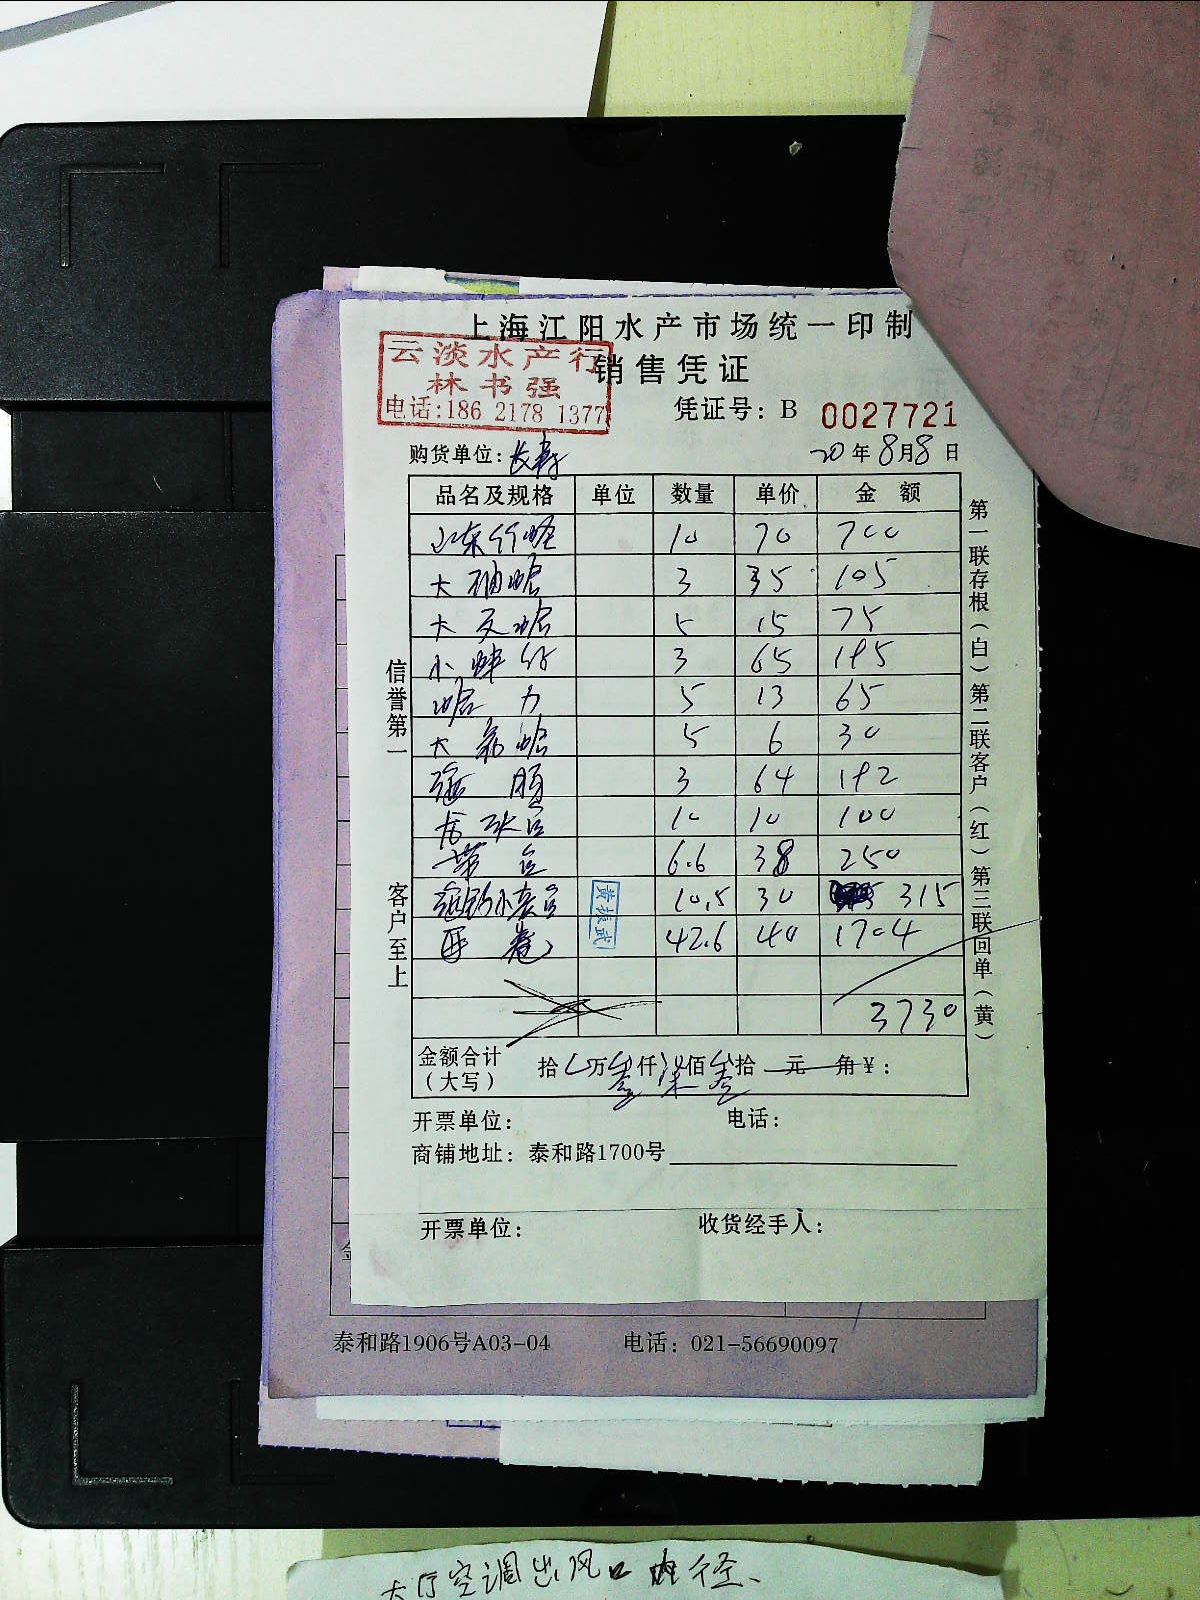 上海江阳水产市场统一印制
销售凭证
云淡水产行
林书强
电话:186 2178 1377
凭证号: B 0027721
购货单位: 长寿
20年8月8日
品名及规格 单位 数量 单价 金额
山东竹蛏 10 70 700
大油蛤 3 35 105
大文蛤 5 15 75
小鲜 3 65 195
蛤力 5 13 65
大花蛤 5 6 30
3 64 192
10 10 100
6.6 38 250
10.5 30 315
42.6 40 1704
黄振武
3730
金额合计
(大写)
拾 万叁仟柒佰叁拾元角¥:
开票单位: 电话:
商铺地址: 泰和路1700号
开票单位: 收货经手人:
信誉第一
客户至上
第一联存根(白)第二联客户(红)第三联回单(黄)
金
泰和路1906号A03-04 电话: 021-56690097
大厅空调出风口内径、